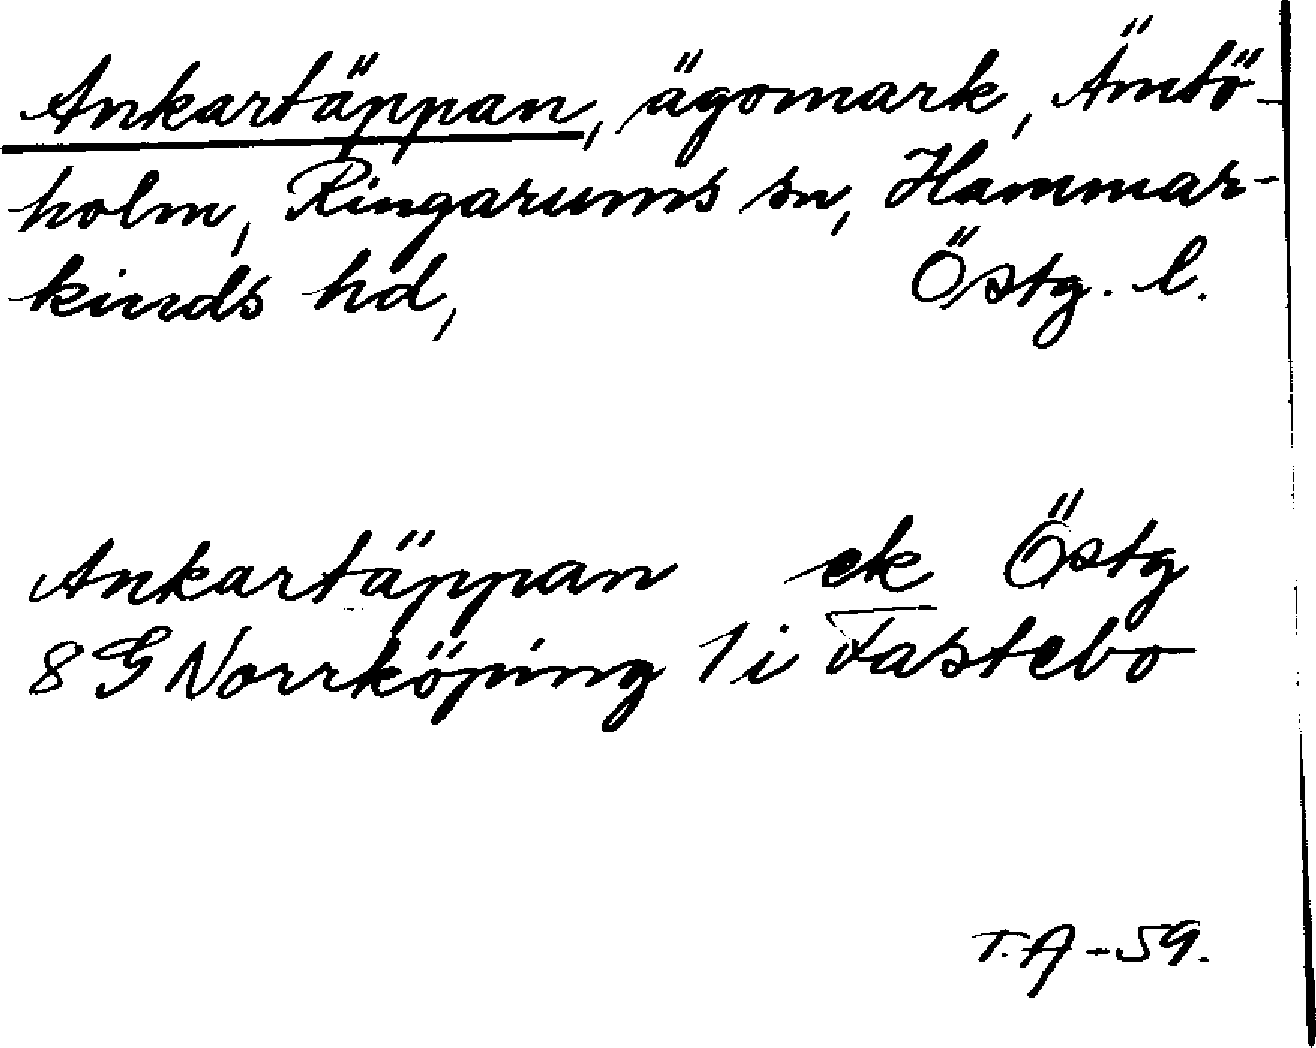 Ankartäppan, ägomark, Ämtö-
holm, Ringarums sn, Hammar-
kinds hd, Östg. l.
Ankartäppan ek Östg
8 G Norrköping 1 i Fastebo
T.A-59.